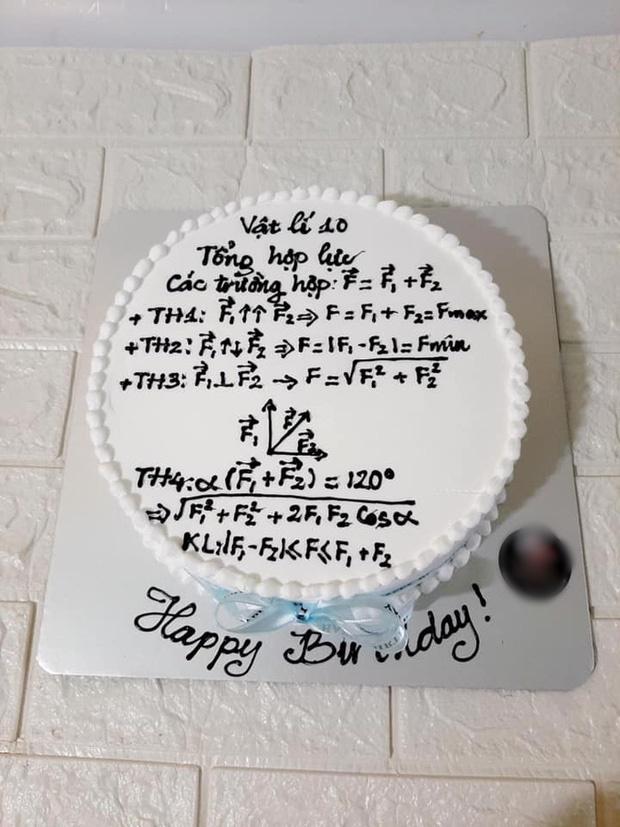 Vật lí 10
Tổng hợp lực
Các trường hợp: F⃗ = F⃗₁ + F⃗₂
+ TH1: F⃗₁↑↑ F⃗₂ ⇒ F = F₁ + F₂ = Fmax
+ TH2: F⃗₁↑↓ F⃗₂ ⇒ F = |F₁ - F₂| = Fmin
+ TH3: F⃗₁⊥F⃗₂ → F = √F₁² + F₂²
F⃗₁ F⃗ F⃗₂
TH4: α (F⃗₁ + F⃗₂) = 120°
⇒ √F₁² + F₂² + 2F₁ F₂ Cos α
KL: |F₁ - F₂| ≤ F ≤ F₁ + F₂
Happy Birthday!